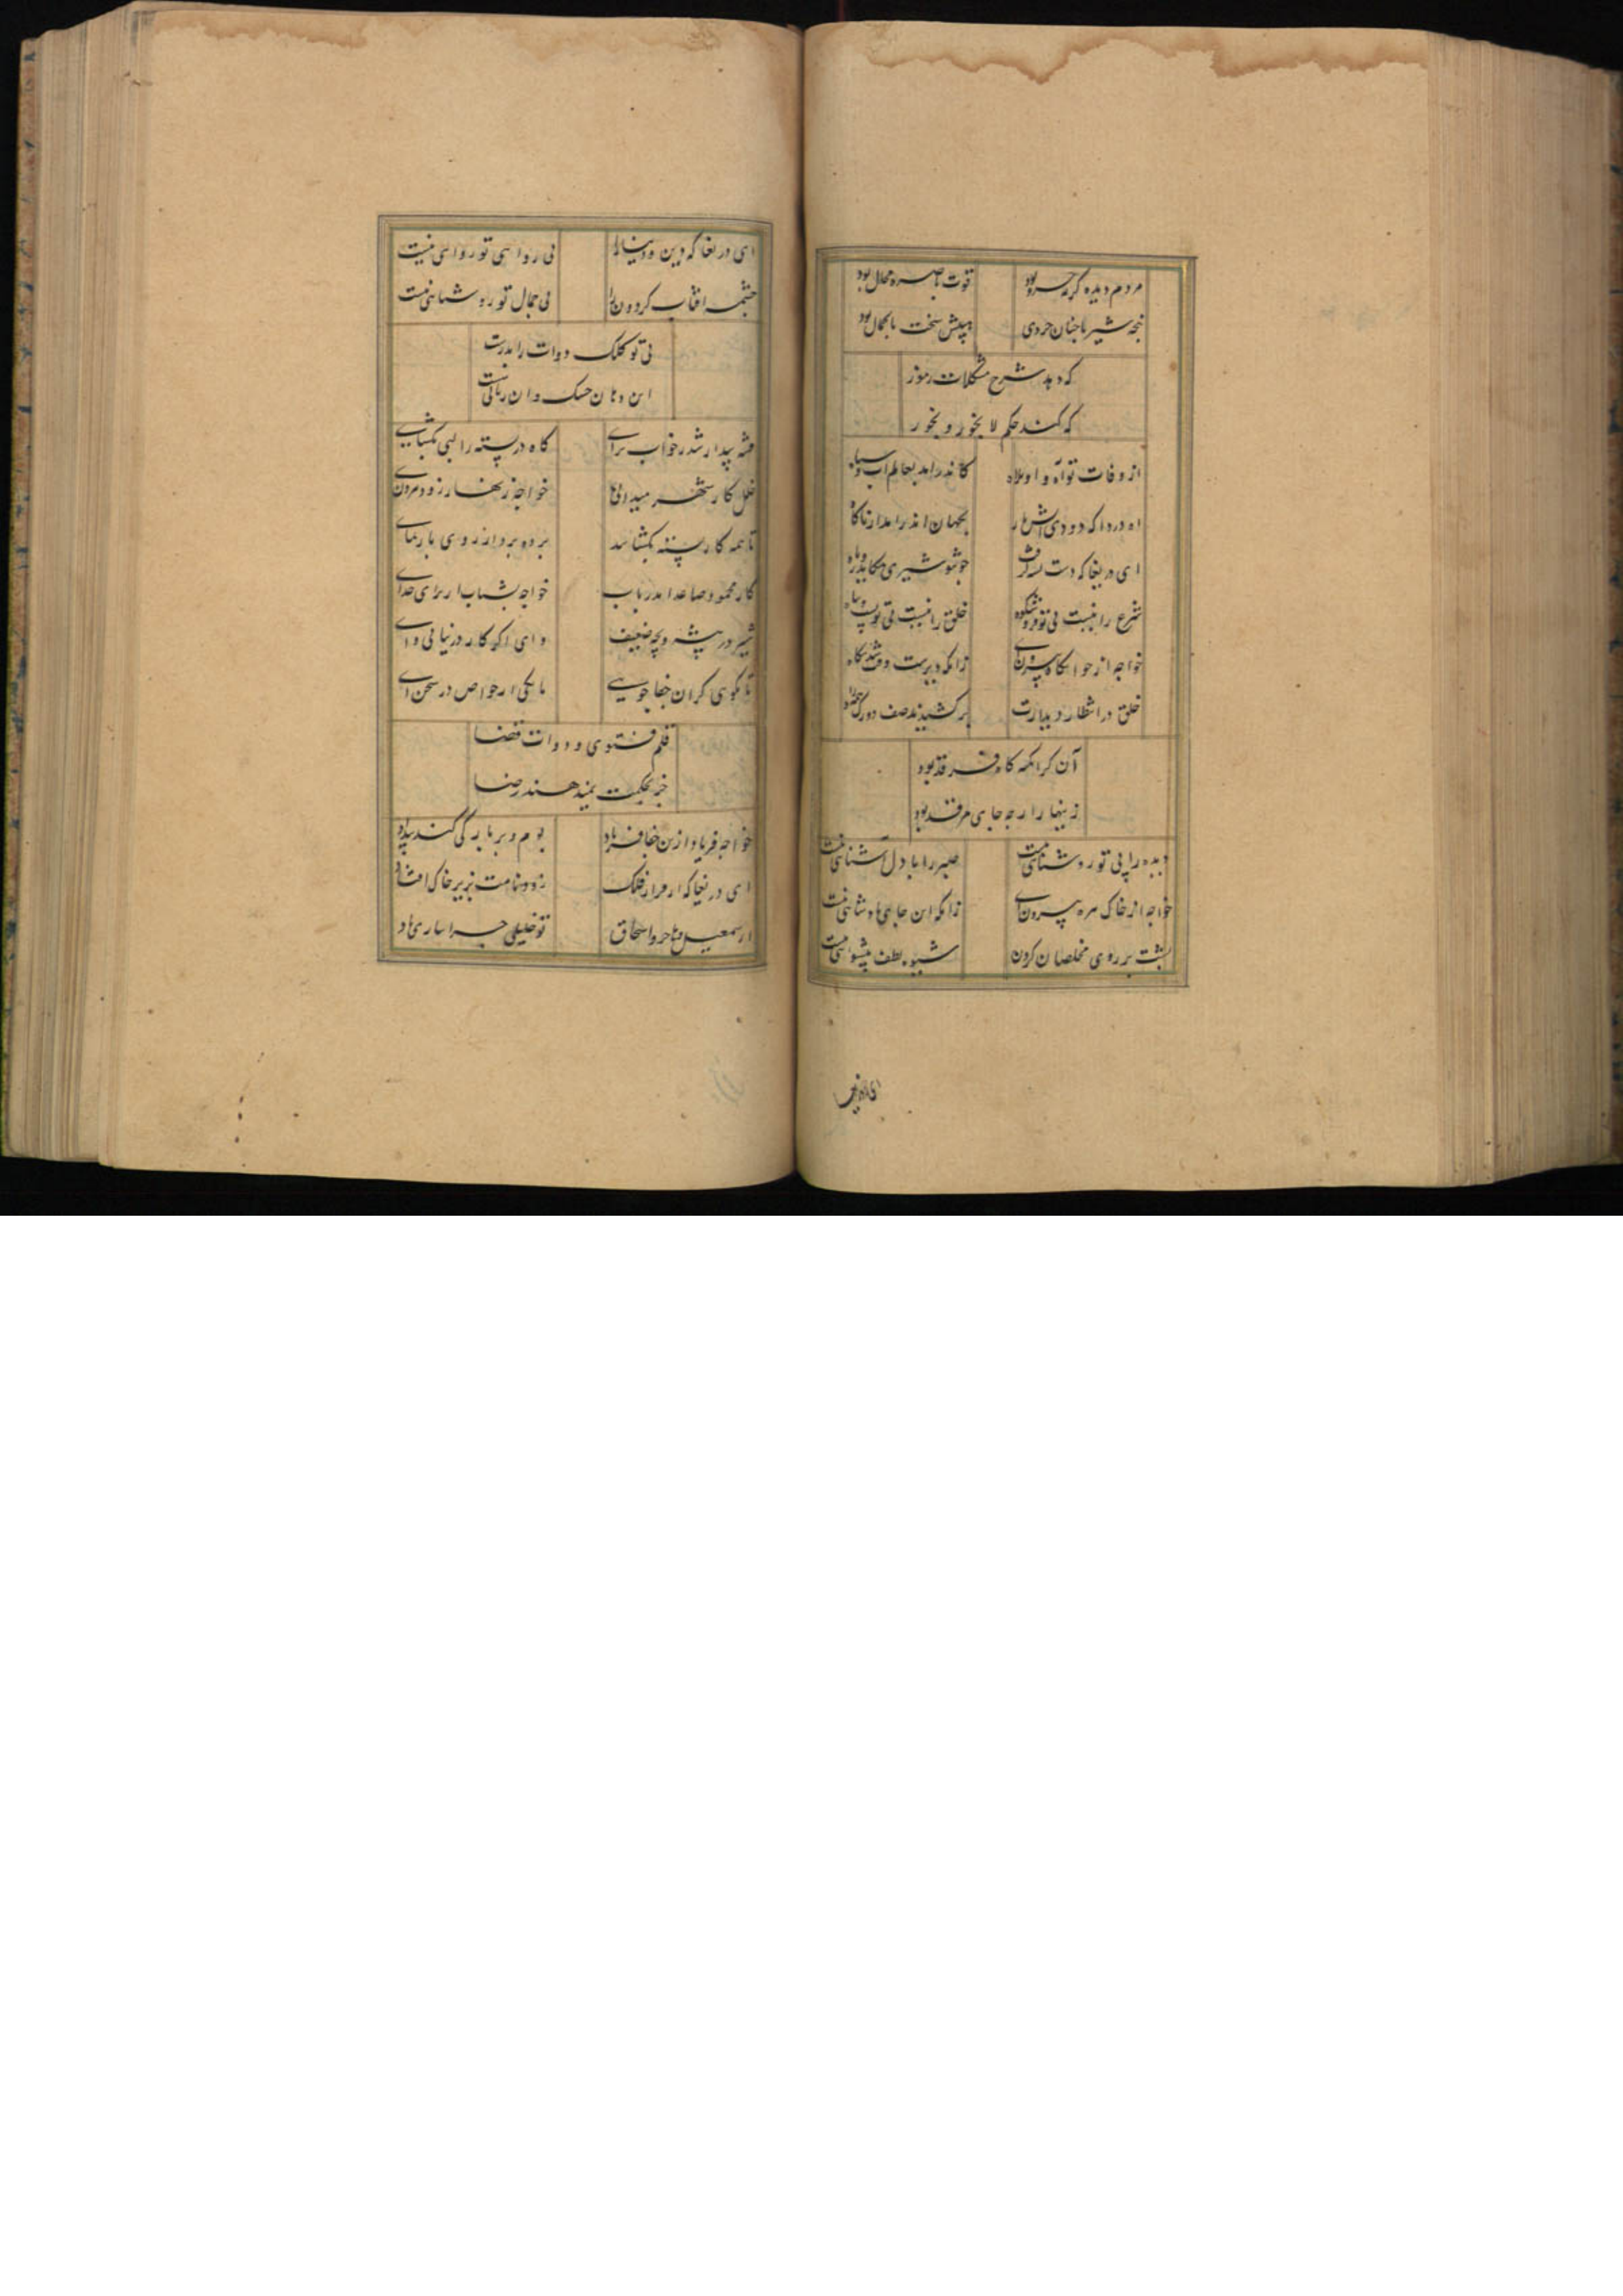 مردم دیده گرچه خرد بود قوت باصره محال بود
پنجه شیر با چنان خردی پیش سخت با کمال بود
که دهد شرح مشکلات رموز
که کند حکم لا یجوز و یجوز
از وفات تو آه و اویلاه کاندر امد بعالم آب سیاه
اه دردا که دودی آتش بار بجهان اندر امد از ناگاه
ای دریغا که دست
شرع را نیست بی تو فر و شکوه خلق را نیست بی تو پشت و پناه
خواجه از خوابگاه بیرون آی زانکه دیرست وقت شد بیگاه
خلق در انتظار دیدارت برکشیدند صف دور
آن کرانمکه کاه فرقد بود
زینها را چه جای مرقد بود
دیده را بی تو روشنائی نیست صبر را با دل آشنائی نیست
خواجه از خاک سره بیرون آی زانکه این جای پادشائی نیست
پشت بر روی مخلصان کردن شیوه لطف پیشوائی نیست
ای دریغا که دین و دنیا را بی روائی تو روائی نیست
چشمه افتاب کردون را بی جمال تو روشنائی نیست
بی تو کلک و دوات را بدرست
این دهان خشک وان زبانی نیست
فتنه بیدار شد ز خواب برآی کاه در بسته را لبی بکشای
خلل کار شهر میدانی خواجه زنهار زود بیرون آی
تا همه کار بسته بکشاید پرده بردار ز روی باز نمای
کار محمود صاعد اندریاب خواجه بشتاب از برای خدای
شیر در بیشه و بچه ضعیف وای اکر کار در نیابی وای
تا نکوی کران جفا جویی با یکی از خواص در سخن آی
قلم فتوی و دوات قضا
جز بحکمت نمیدهند رضا
خواجه فریاد ازین جفا فریاد بوم و بر بارگی کند بیداد
ای دریغا که از فراز فلک زود نامت بزیر خاک افتاد
از سمعیل و هاجر و اسحاق تو خلیلی چرا نیاری یاد